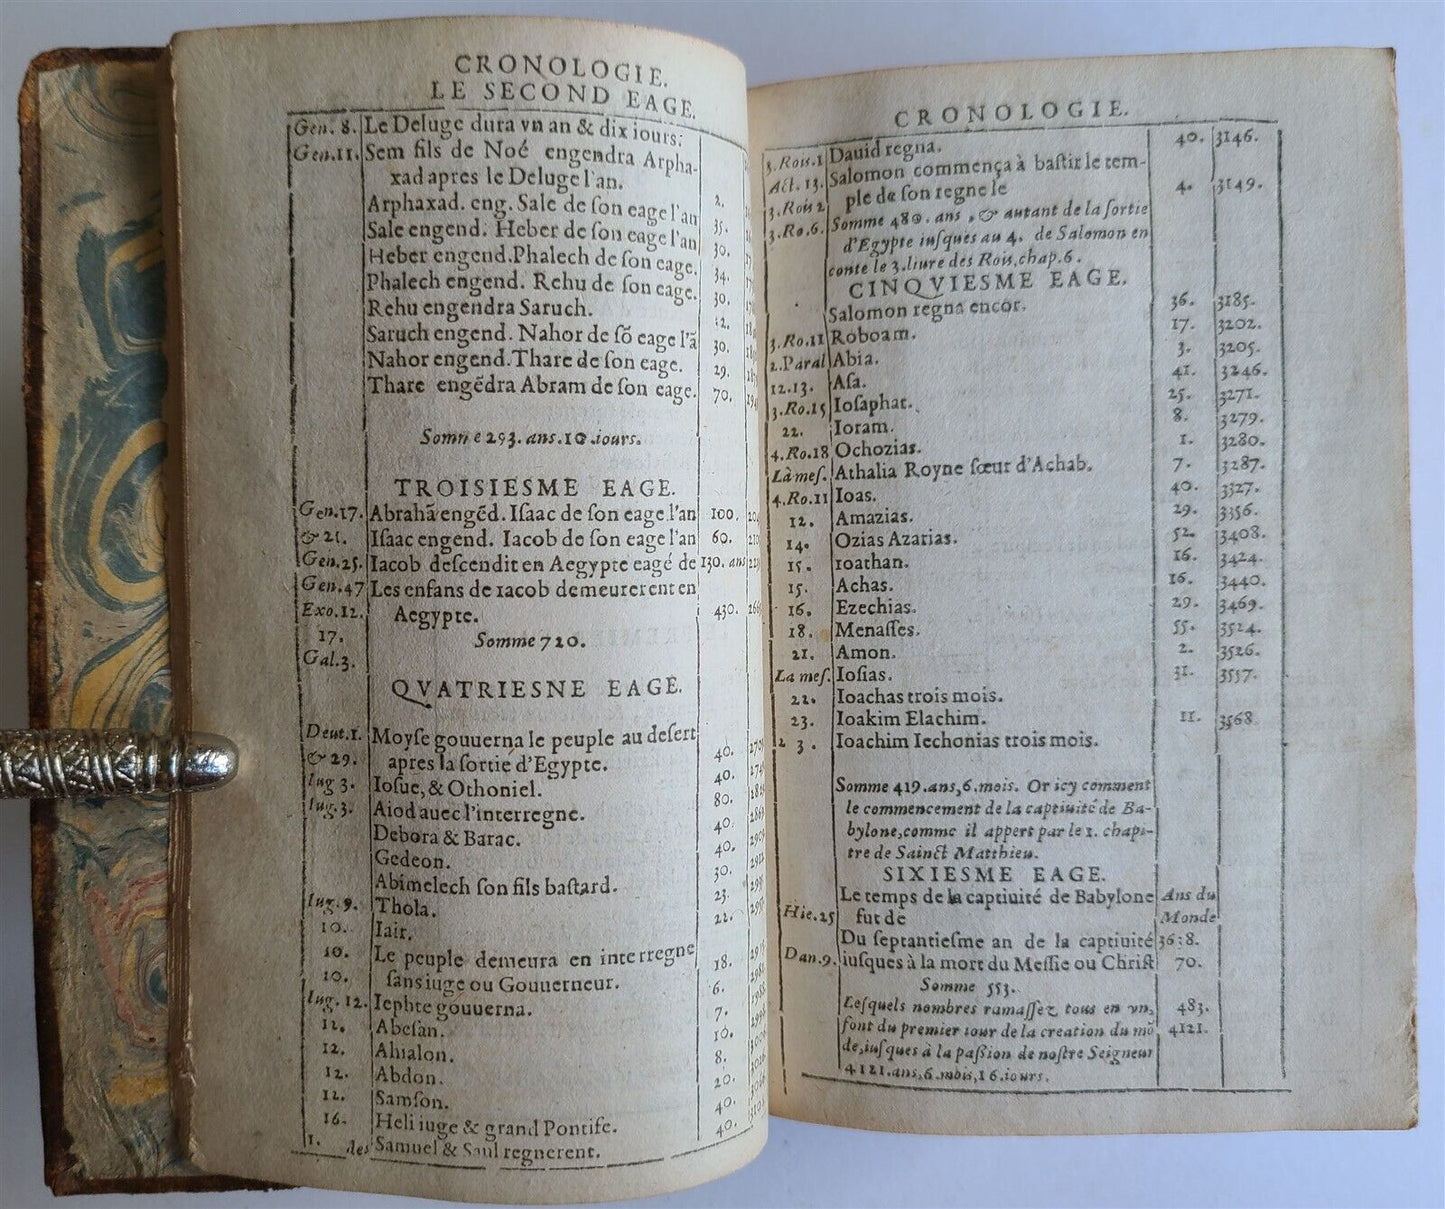 CRONOLOGIE.
LE SECOND EAGE.
Gen. 8. Le Deluge dura vn an & dix iours:
Gen.11. Sem fils de Noé engendra Arpha-
xad apres le Deluge l'an. 2.
Arphaxad. eng. Sale de ſon eage l'an 35.
Sale engend. Heber de ſon eage l'an 30.
Heber engend. Phalech de ſon eage. 34.
Phalech engend. Rehu de ſon eage. 30.
Rehu engendra Saruch. 12.
Saruch engend. Nahor de ſõ eage l'ã 30.
Nahor engend. Thare de ſon eage. 29.
Thare engẽdra Abram de ſon eage. 70.
Somme 293. ans. 10. iours.
TROISIESME EAGE.
Gen.17. Abrahã engẽd. Iſaac de ſon eage l'an 100.
& 21. Iſaac engend. Iacob de ſon eage l'an 60.
Gen.25. Iacob deſcendit en Aegypte eagé de 130. ans
Gen.47 Les enfans de Iacob demeurerent en
Exo.12. Aegypte. 430.
17. Somme 720.
Gal.3.
QVATRIESNE EAGE.
Deut.1. Moyſe gouuerna le peuple au deſert
& 29. apres la ſortie d'Egypte. 40.
Iug 3. Ioſue, & Othoniel. 40.
Iug.3. Aiod auec l'interregne. 80.
Debora & Barac. 40.
Gedeon. 40.
Abimelech ſon fils baſtard. 30.
Iug.9. Thola. 23.
10. Iair. 22.
10. Le peuple demeura en interregne
10. ſans iuge ou Gouuerneur. 18.
Iug. 12. Iephte gouuerna. 6.
12. Abeſan. 7.
12. Ahialon. 10.
12. Abdon. 8.
12. Samſon. 20.
16. Heli iuge & grand Pontife. 40.
1. des Samuel & Saul regnerent. 40.
CRONOLOGIE.
3. Rois.1 Dauid regna. 40. 3146.
Act. 13. Salomon commença à baſtir le tem-
3. Rois 2 ple de ſon regne le 4. 3149.
3. Ro. 6. Somme 480. ans, & autant de la ſortie
d'Egypte iuſques au 4. de Salomon en
conte le 3. liure des Rois, chap. 6.
CINQVIESME EAGE.
Salomon regna encor. 36. 3185.
3. Ro.11 Roboam. 17. 3202.
2. Paral Abia. 3. 3205.
12.13. Aſa. 41. 3246.
3. Ro.15 Ioſaphat. 25. 3271.
22. Ioram. 8. 3279.
4. Ro.18 Ochozias. 1. 3280.
Là meſ. Athalia Royne ſœur d'Achab. 7. 3287.
4. Ro.11 Ioas. 40. 3327.
12. Amazias. 29. 3356.
14. Ozias Azarias. 52. 3408.
15. Ioathan. 16. 3424.
15. Achas. 16. 3440.
16. Ezechias. 29. 3469.
18. Menaſſes. 55. 3524.
21. Amon. 2. 3526.
La meſ. Ioſias. 31. 3557.
22. Ioachas trois mois.
23. Ioakim Elachim. 11. 3568
2 3. Ioachim Iechonias trois mois.
Somme 419. ans, 6. mois. Or icy comment
le commencement de la captiuité de Ba-
bylone, comme il appert par le 1. chapi-
tre de Sainct Matthieu.
SIXIESME EAGE.
Le temps de la captiuité de Babylone Ans du
Hie.25 fut de Monde
Du ſeptantieſme an de la captiuité 36:8.
Dan.9. iuſques à la mort du Meſſie ou Chriſt 70.
Somme 553.
Leſquels nombres ramaſſez tous en vn, 483.
font du premier iour de la creation du mõ 4121.
de, iuſques à la paſſion de noſtre Seigneur
4121. ans, 6. mois, 16. iours.